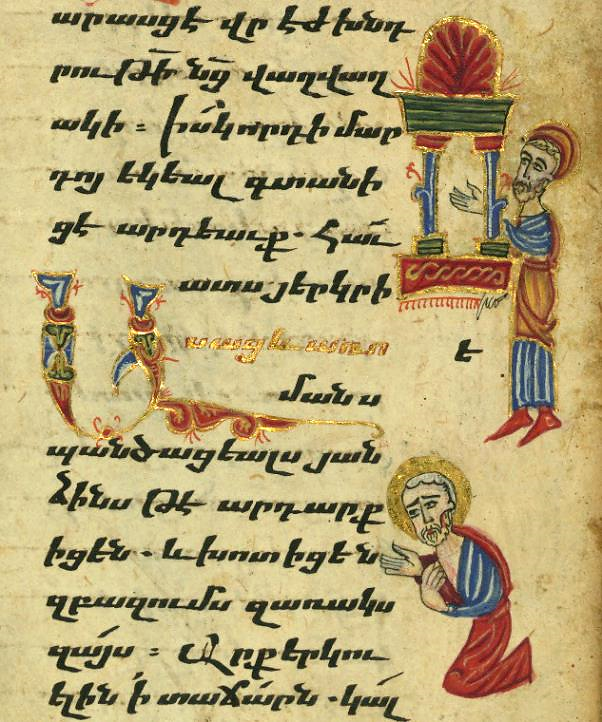 արասցէ վրէժխնդ
րութի՛ նց վաղվաղ
ակի ։ իսկ որդի մար
դոյ եկեալ գտանի
ցէ արդեաւք. Հաւ
ատս յերկրի
Ասաց եւ առ ո
է
մանս
պանծացեալս յան
ձինս թէ արդարք
իցեն. և խոտիցեն
զբազումս զառակս
զայս ։ Արք երկու
ելին ՚ի տաճարն. կալ